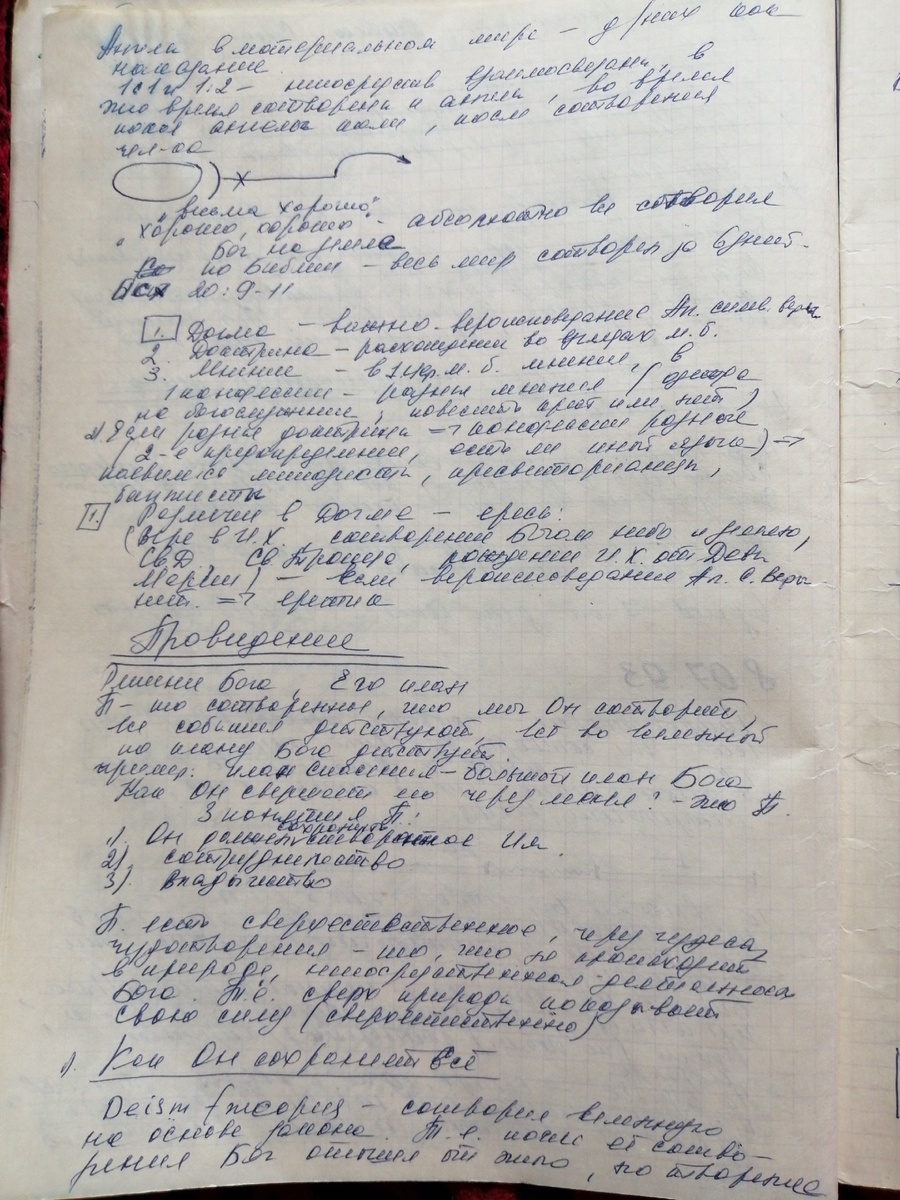 Ангела в материальном мире – у них
наказание.
1:1 и 1:2 – непосредствен взаимосвязаны, в
это время сотворены и ангелы, во время
ангелы пали, после сотворения
чел-ка
"весьма хорошо"
"хорошо, хорошо" – абсолютно все сотворил
Бог на земле
по Библии – весь мир сотворен за 6 дней.
Исх 20:9-11
1. Догма – важно. вероисповедание Ап. симв. веры
2. Доктрина – расхождения во взглядах м. б.
3. Мнение – в 1 церк. м. б. мнения, в
1 конфессии – разные мнения (
на богослужение, повесить крест или нет)
2) Если разные доктрины => конфессии разные
(2-е предопределение, есть ли иные языки) ->
появились методисты, пресвитерианцы,
баптисты
1. Различие в Догме – ересь:
(вера в И.Х., сотворение Богом небо и землю,
Св.Д., Св. Троица, рождение И.Х. от Девы
Марии) – если вероисповедание Ап. С. Веры
нет. => еретик
Провидение
Решение Бога, Его план
П – это сотворенное, что мы Он сотворил,
все события действуют, всё во вселенной
по плану Бога действует.
пример: план спасения – большой план Бога
Как Он свершает это через меня? – это П.
3 понятия П:
1) Он сохранить сотворенное Им.
2) сотрудничество
3) владычество
П. есть сверхестественное, через чудеса,
чудотворения – то, что не происходит
в природе, непосредственная деятельность
Бога. Т.е. сверх природы показывает
Свою силу (сверхестественно)
1). Как Он сохраняет всё
Deism (теория – сотворил вселенную
на основе закона. Т.е. после её сотво-
рения Бог отошел от этого, но творение